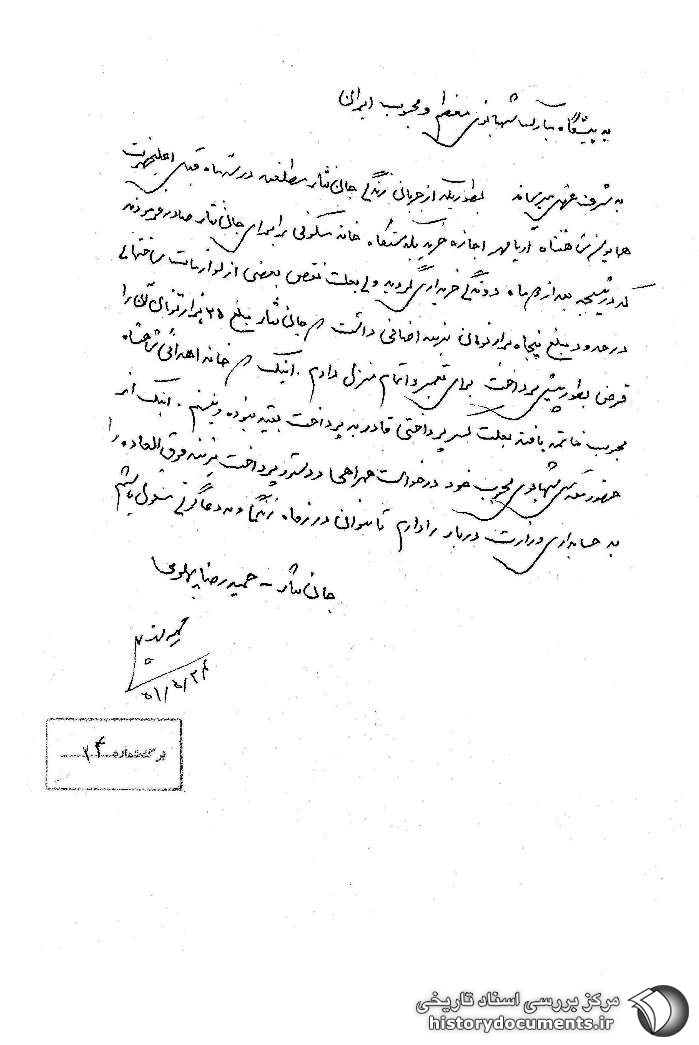 به پیشگاه مبارک شهبانوی معظم و محبوب ایران
به شرف عرض میرساند بطوریکه از جریان زندگی جان نثار مطلعید در سه ماه قبل اعلیحضرت
همایون شاهنشاه آریامهر اجازه خرید یکدستگاه خانه مسکونی را برای جان نثار صادر فرمودند
که در نتیجه بعد از دو ماه دوندگی خریداری گردید ولی بعلت نقص بعضی از لوازمات ساختمانی
در حدود مبلغ پنجاه هزار تومان هزینه اضافی داشت که جان نثار مبلغ ۲۵ هزار تومان آن را
قرض بطور پیش پرداخت برای تعمیر و اتمام منزل دادم . اینک که خانه اهدائی شاهنشاه
محبوب خاتمه یافته بعلت کسر پرداختی قادر به پرداخت بقیه نبوده و نیستم . اینک از
حضور شهبانوی محبوب خود درخواست همراهی و دستور پرداخت هزینه فوق العاده را
به حسابداری وزارت دربار را دارم تا بتوان در رفاه زندگی نما و به دعاگوئی مشغول باشم
جان نثار – حمید رضا پهلوی
۵۱/۵/۲۴
برگشماره ۲۴
مرکز بررسی اسناد تاریخی
historydocuments.ir